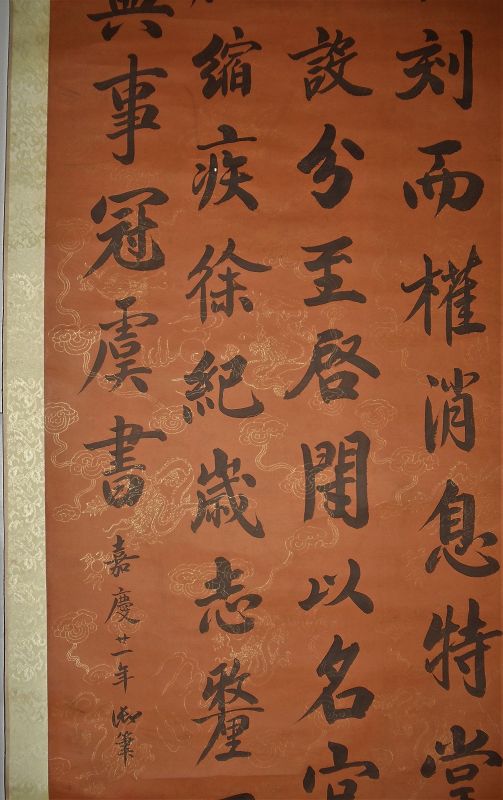 刻而權消息特掌
設分至啓閏以名官
縮疾徐紀歲志釐
典事冠虞書
嘉慶廿一年御筆